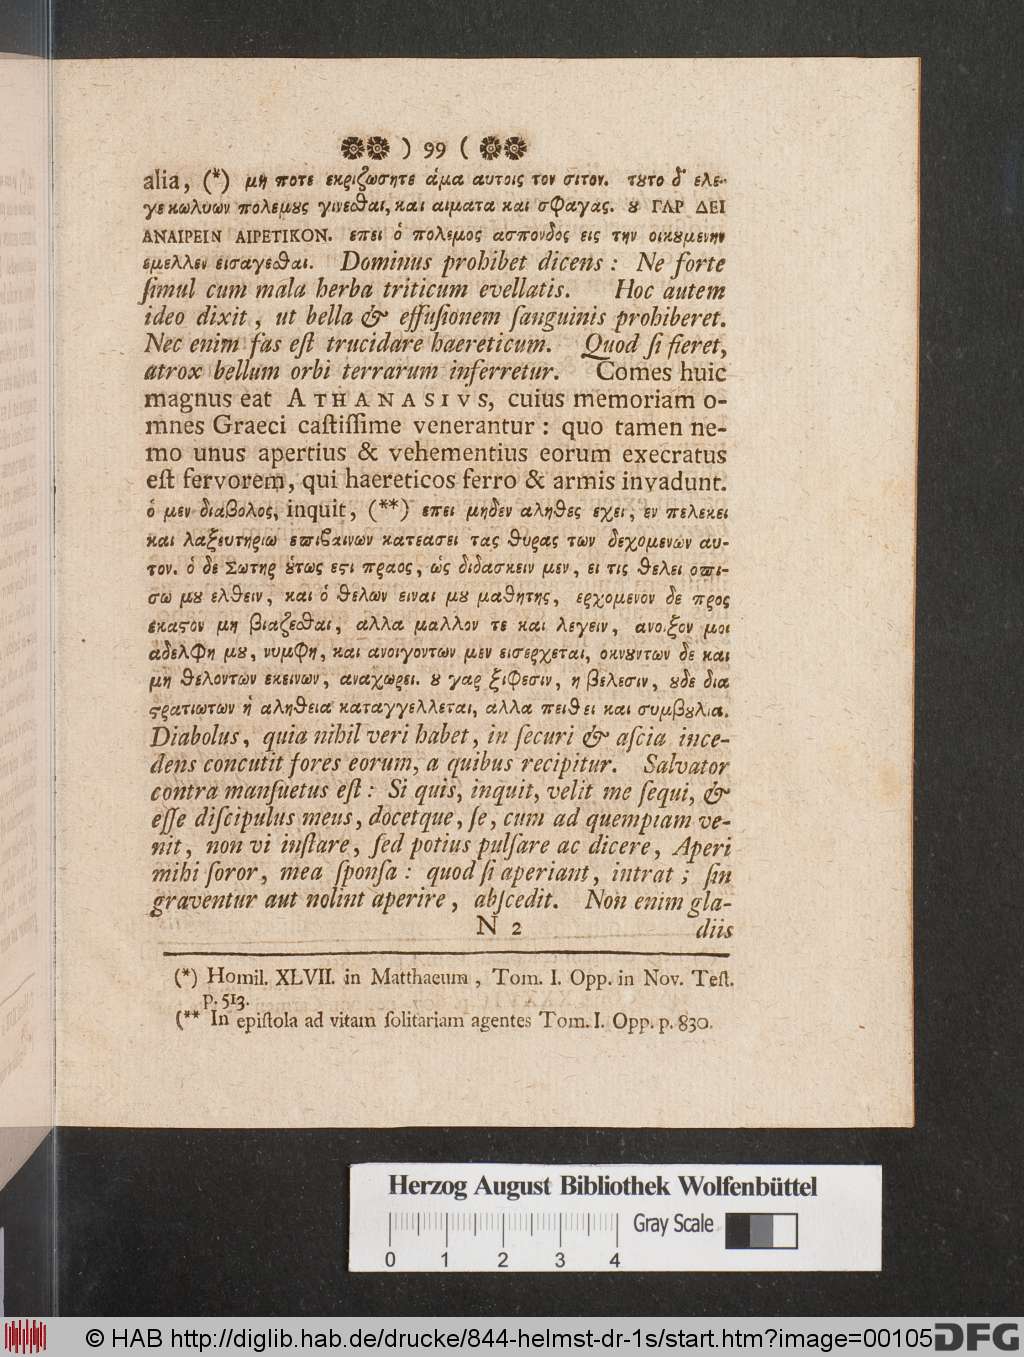 ) 99 (
alia, (*) μη ποτε εκριζωσητε ἁμα αυτοις τον σιτον. τȣτο δ' ελε-
γε κωλυων πολεμȣς γινεσθαι, και αιματα και σφαγας. ȣ ΓΑΡ ΔΕΙ
ΑΝΑΙΡΕΙΝ ΑΙΡΕΤΙΚΟΝ. επει ὁ πολεμος ασπονδος εις την οικȣμενην
εμελλεν εισαγεσθαι. Dominus prohibet dicens: Ne forte
ſimul cum mala herba triticum evellatis. Hoc autem
ideo dixit, ut bella & effuſionem ſanguinis prohiberet.
Nec enim fas eſt trucidare haereticum. Quod ſi fieret,
atrox bellum orbi terrarum inferretur. Comes huic
magnus eat ATHANASIVS, cuius memoriam o-
mnes Graeci caſtiſſime venerantur: quo tamen ne-
mo unus apertius & vehementius eorum execratus
eſt fervorem, qui haereticos ferro & armis invadunt.
ὁ μεν διαβολος, inquit, (**) επει μηδεν αληθες εχει, εν πελεκει
και λαξευτηριω επιβαινων κατεασει τας θυρας των δεχομενων αυ-
τον. ὁ δε Σωτηρ ȣ̔τως εϛι πραος, ὡς διδασκειν μεν, ει τις θελει οπι-
σω μȣ ελθειν, και ὁ θελων ειναι μȣ μαθητης, ερχομενον δε προς
εκαϛον μη βιαζεσθαι, αλλα μαλλον τε και λεγειν, ανοιξον μοι
αδελφη μȣ, νυμφη, και ανοιγοντων μεν εισερχεται, οκνȣντων δε και
μη θελοντων εκεινων, αναχωρει. ȣ γαρ ξιφεσιν, η βελεσιν, ȣδε δια
ϛρατιωτων ἡ αληθεια καταγγελλεται, αλλα πειθει και συμβȣλια.
Diabolus, quia nihil veri habet, in ſecuri & aſcia ince-
dens concutit fores eorum, a quibus recipitur. Salvator
contra manſuetus eſt: Si quis, inquit, velit me ſequi, &
eſſe diſcipulus meus, docetque, ſe, cum ad quempiam ve-
nit, non vi inſtare, ſed potius pulſare ac dicere, Aperi
mihi ſoror, mea ſponſa: quod ſi aperiant, intrat; ſin
graventur aut nolint aperire, abſcedit. Non enim gla-
N 2 diis
(*) Homil. XLVII. in Matthaeum, Tom. I. Opp. in Nov. Teſt.
p. 513.
(** In epiſtola ad vitam ſolitariam agentes Tom. I. Opp. p. 830.
Herzog August Bibliothek Wolfenbüttel
Gray Scale
0 1 2 3 4
© HAB http://diglib.hab.de/drucke/844-helmst-dr-1s/start.htm?image=00105
DFG